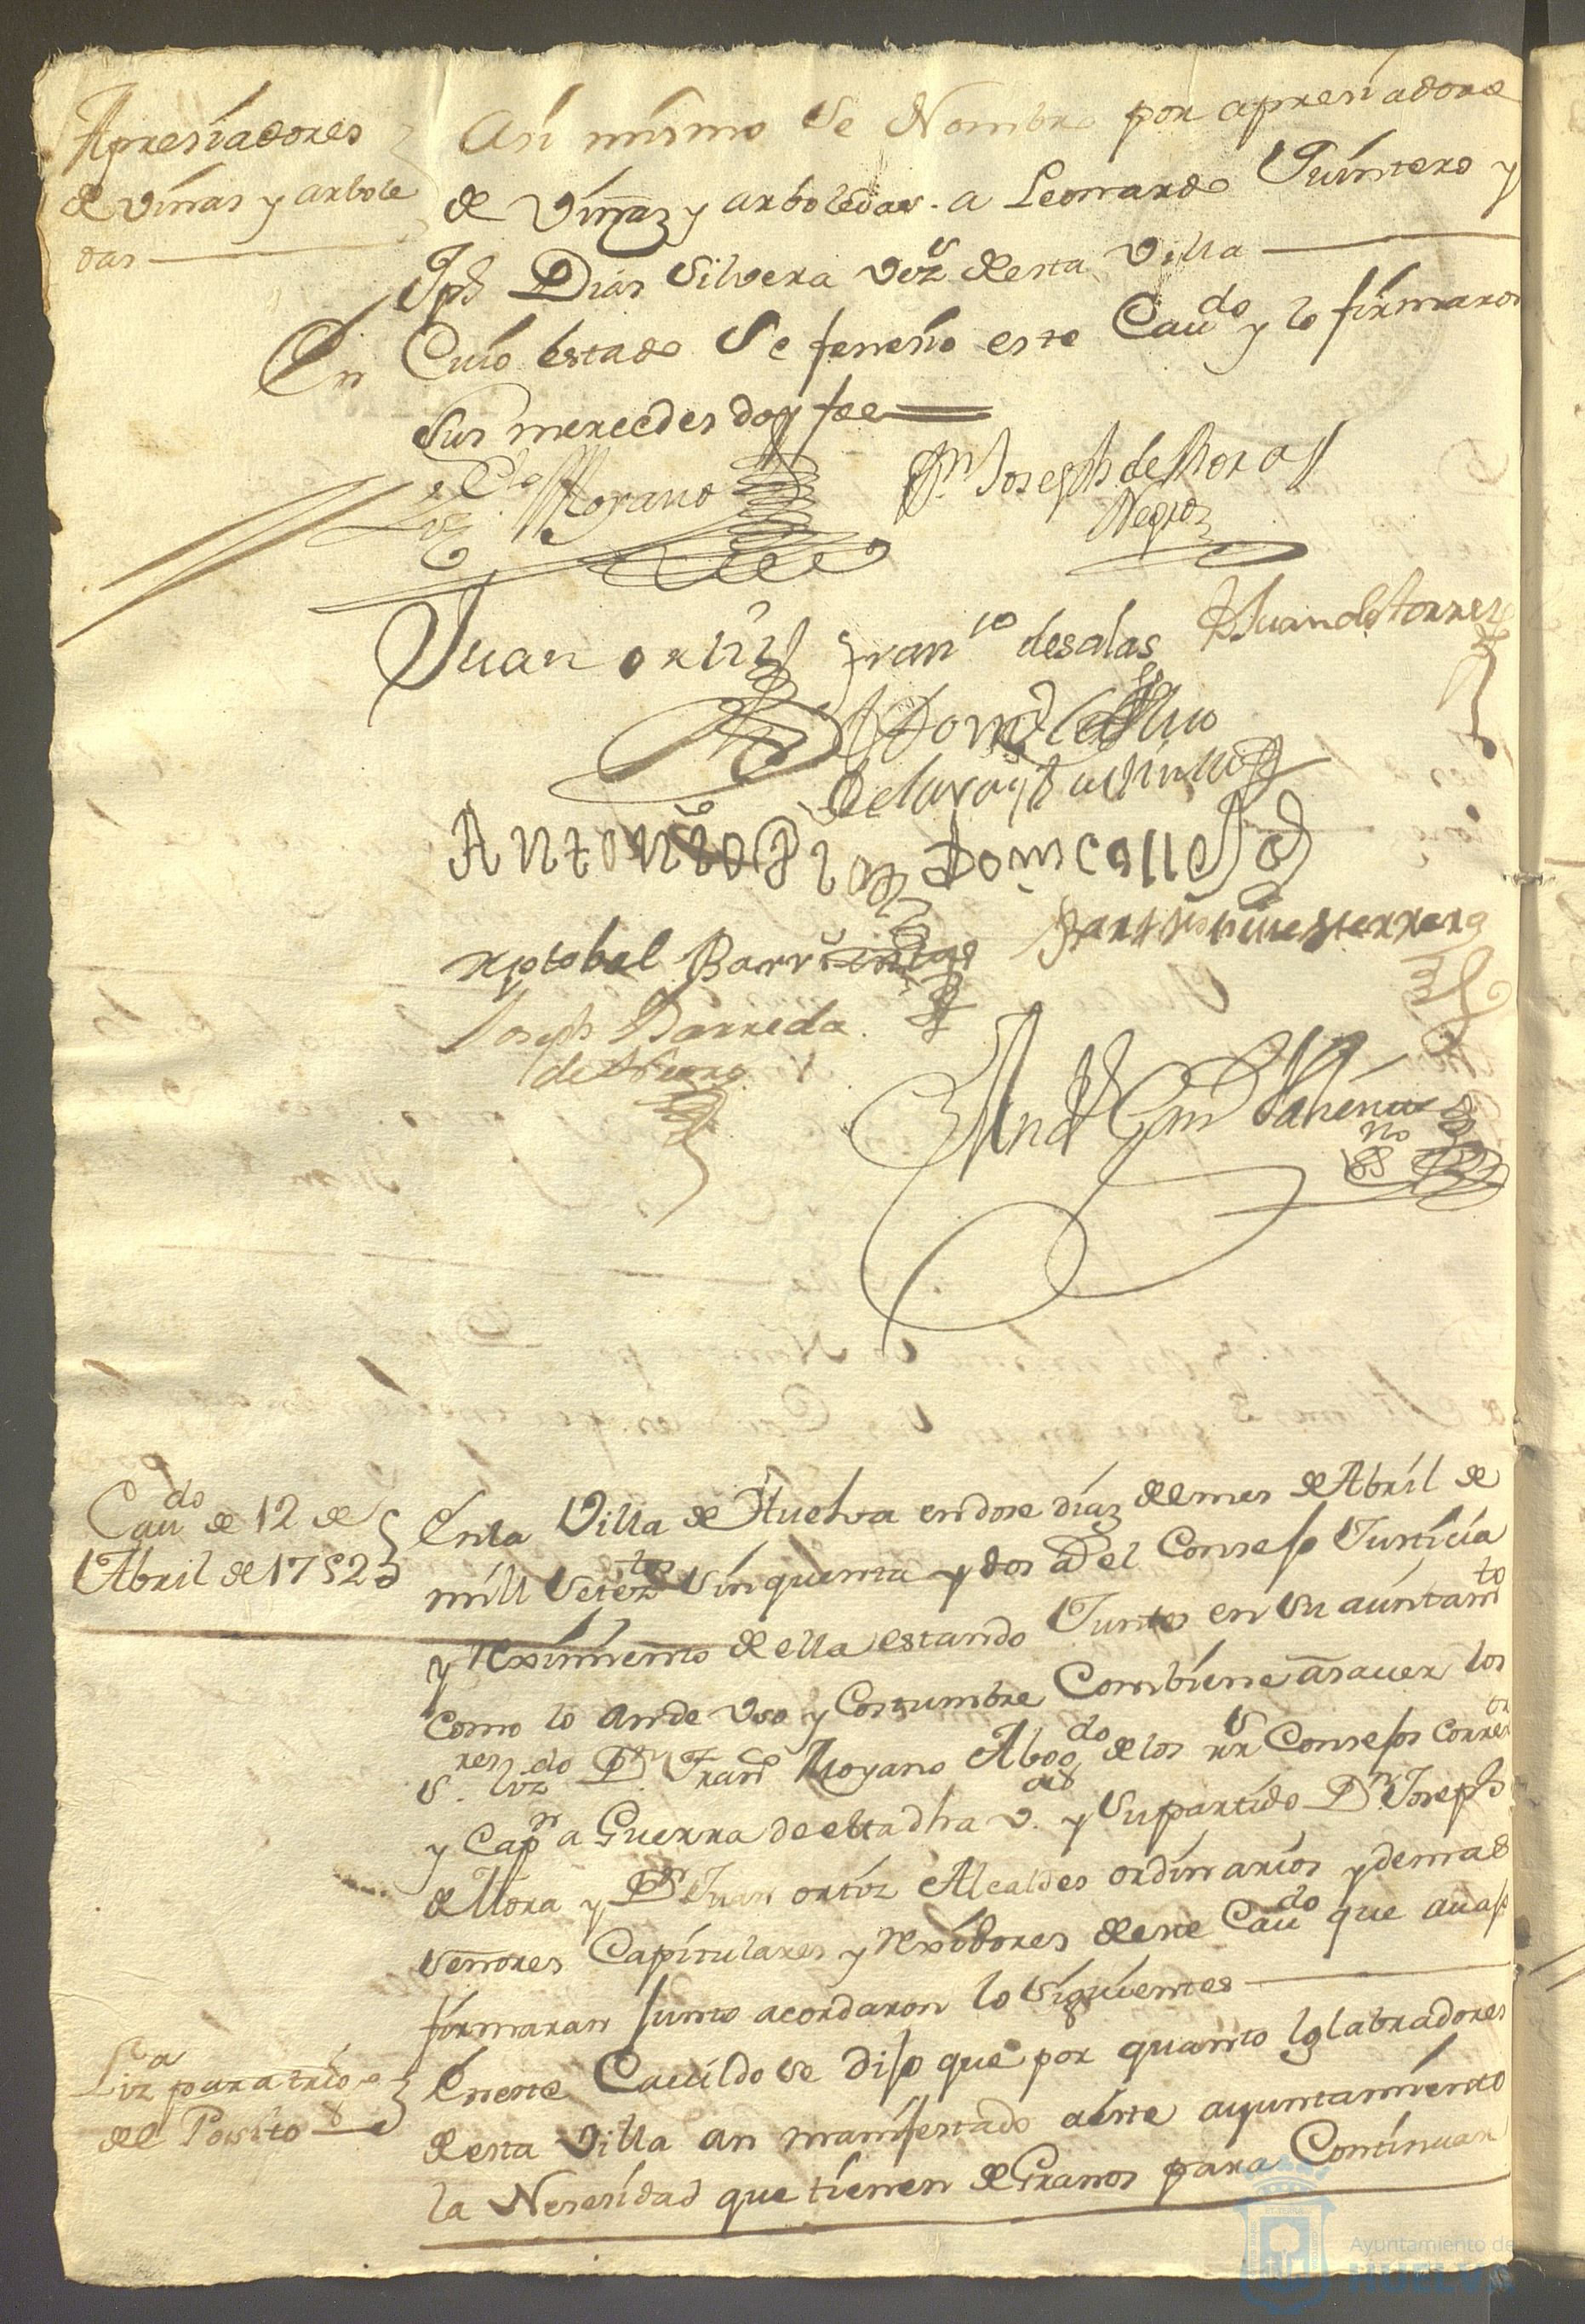 Apresiadores
de viñas y arbole
das
Asi mismo Se Nombro por apresiadores
de Viñas y arboledas. a Leonardo Quintero y
Jph Dias Silvera vezs desta Villa
En Cuio estado Se fenesio este Caudo y lo firmaron
Sus mercedes doy fee
Lizdo Moyano
Dn Joseph de Mora
Negro
Juan ortiz
Franco de salas
D Juan de torres
Antonio Diaz
Domo Calleja
xptobal Barrientos
Joseph Barreda
de
Caudo de 12 de
Abril de 1752
En la Villa de Huelva en dose dias del mes de Abril de
mill Seteztos Sinquenta y dos as el Consejo Justicia
y Reximiento de ella estando Juntos en Su aiuntamto
como lo an de Uso y Costumbre Combiene asauer los
Sres lizdo Dn Franco Moyano Abogdo de los Rs Consejos Correxor
y Capn a Guerra de esta dha va y Su partido Dn Joseph
de Mora y Dn Juan ortiz Alcaldes ordinarios y demas
Señores Capitulares y Rexidores deste Caudo que auajo
firmaran Junto acordaron lo Siguientes
Liza para trigo
del Posito
En este Cauildo se dijo que por quanto los labradores
desta Villa an manifestado a este ayuntamiento
la Nesesidad que tienen de Granos para Continuar
Ayuntamiento de
HUELVA